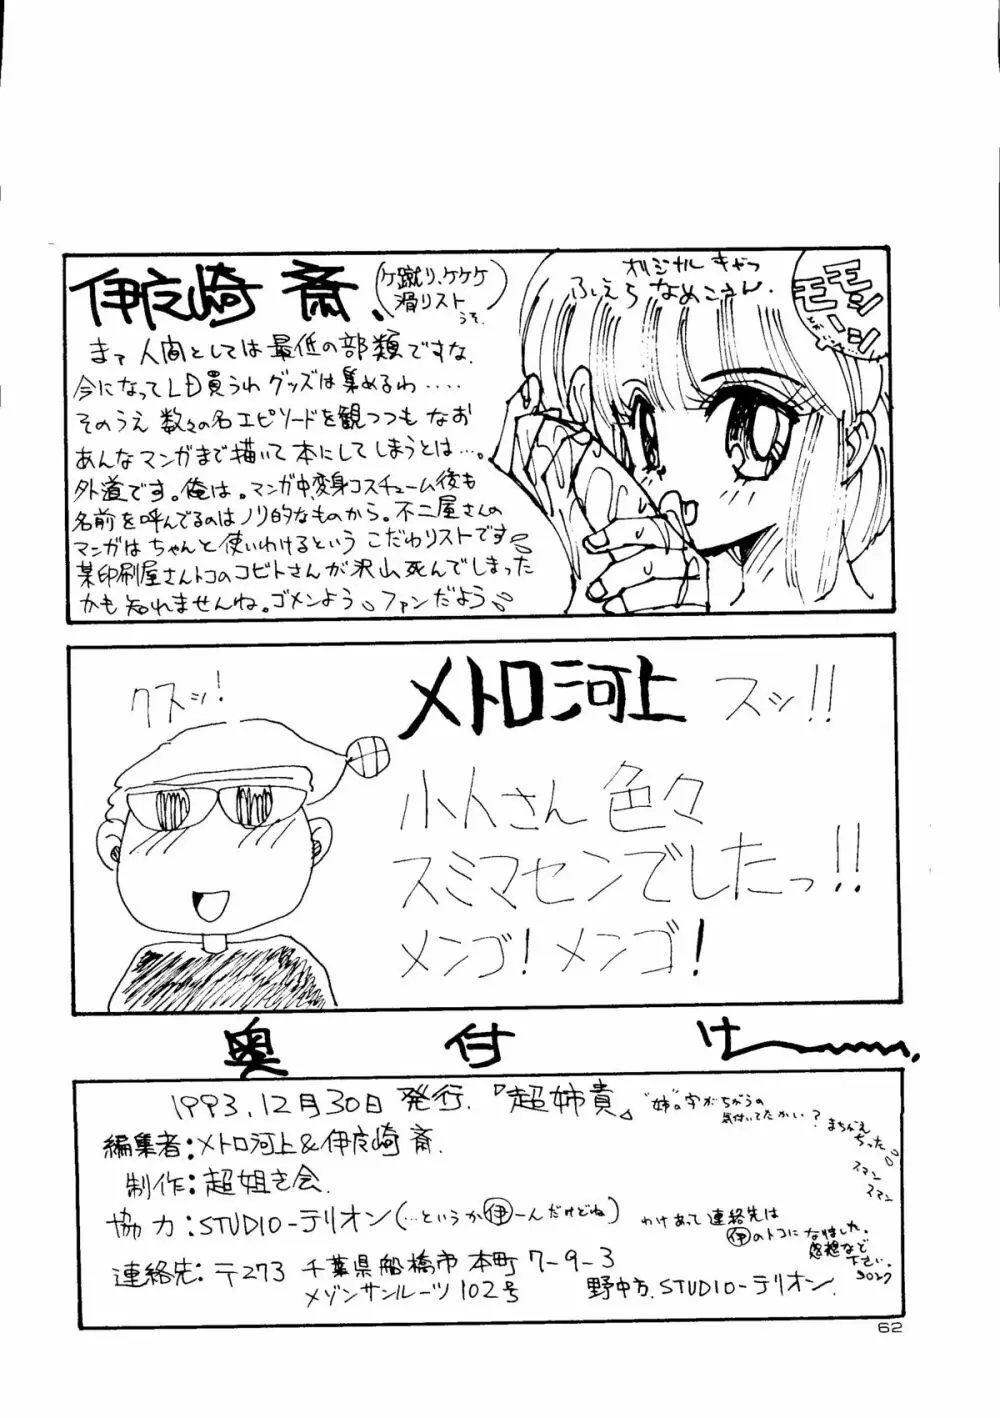 伊良崎 斎、
(ケ蹴り、ケケケ
滑リスト
うそ。
オリジナル キャラ
ふぇら なめこさん.
モシ
モーシ
まて 人間としては 最低の部類ですな.
今になって LD買うわ グッズは集めるわ‥‥
そのうえ 数々の名エピソードを観つつも なお
あんなマンガまで描いて 本にしてしまうとは…。
外道です。俺は。マンガ中変身コスチューム後も
名前を呼んでるのはノリ的なものから。不二屋さんの
マンガは ちゃんと 使いわけるという こだわリストです。
某印刷屋さんトコのコビトさんが沢山死んでしまった
かも知れませんね。ゴメンよう。ファンだよう。
クスッ!
メトロ河上 スッ!!
小人さん 色々
スミマセンでしたっ!!
メンゴ! メンゴ!
奥 付 け
1993.12月30日 発行.『超姉貴』
"姉"の字がちがうの
気付いてたかい?
まちがえ
ちった。
スマン
スマン
編集者:メトロ河上&伊良崎 斎.
制作:超姐き会.
協力:STUDIO-テリオン(…というか㋑一人だけどね)
わけあって 連絡先は
伊のトコに なりました。
感想など
下さい。
連絡先:〒273 千葉県船橋市 本町 7-9-3
メゾンサンルーツ 102号 野中方.STUDIO-テリオン.
62